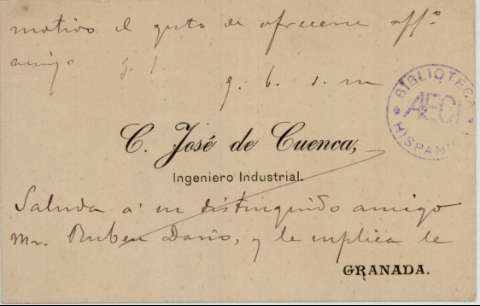 motivo el gusto de ofrecerse affº
amigo s. s.
q. b. s. m
BIBLIOTECA
AECI
HISPAN
C. José de Cuenca,
Ingeniero Industrial.
Saluda a su distinguido amigo
Mr. Ruben Dario, y le suplica le
GRANADA.